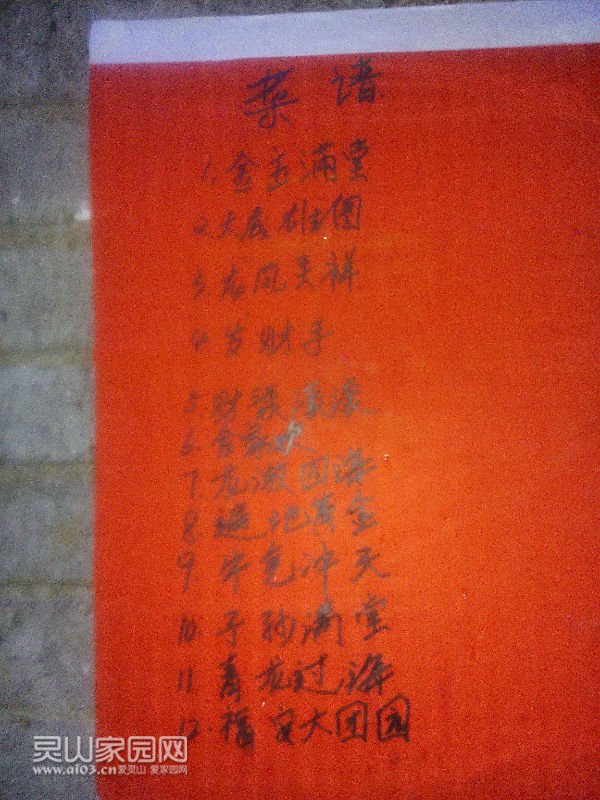 菜谱
1. 金玉满堂
2. 大展雄图
3. 龙凤呈祥
4. 发财手
5. 财源滚滚
6. 合家欢
7. 龙游四海
8. 遍地黄金
9. 牛气冲天
10. 子孙满堂
11. 青龙过海
12. 福宝大团园
灵山家园网
www.ai03.cn 爱灵山 爱家园网